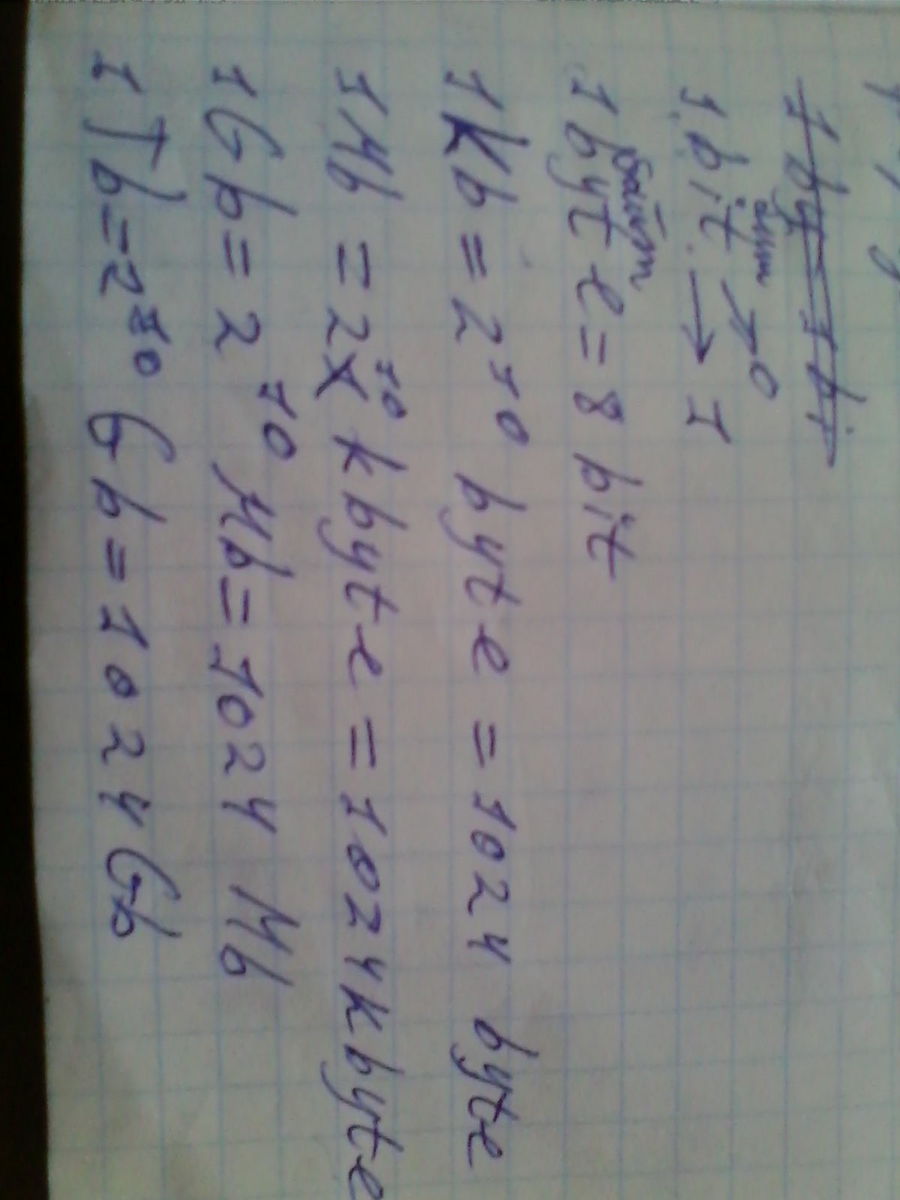 1 bit → 0
бит → 1
1 byte = 8 bit
байт
1 Kb = 2¹⁰ byte = 1024 byte
1 Mb = 2¹⁰ kbyte = 1024 kbyte
1 Gb = 2¹⁰ Mb = 1024 Mb
1 Tb = 2¹⁰ Gb = 1024 Gb